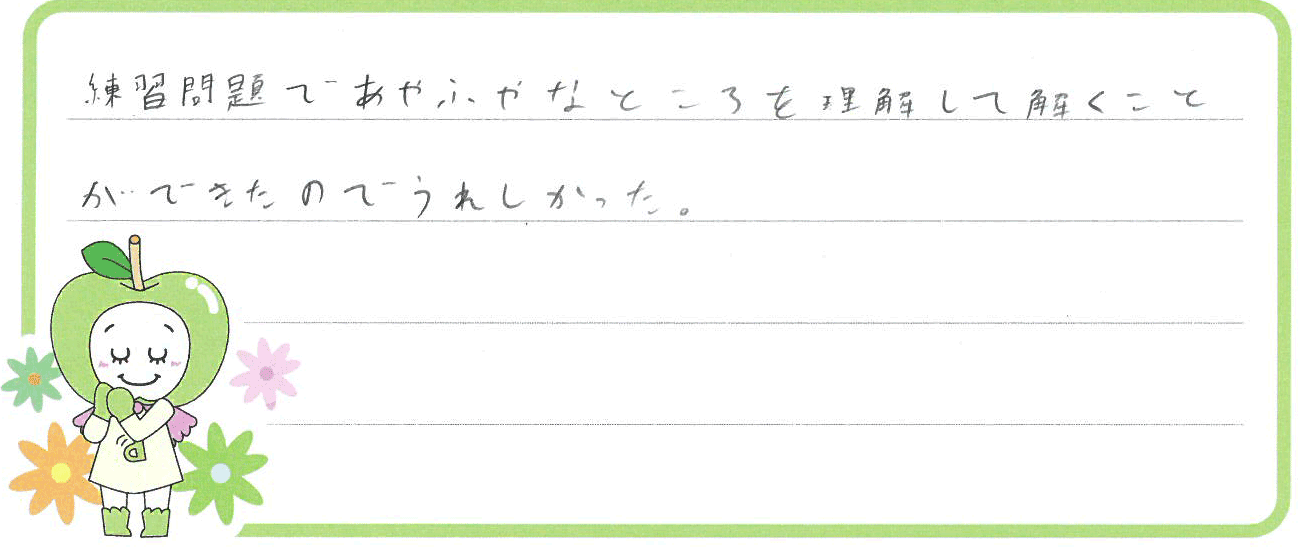 練習問題であやふやなところを理解して解くこと
ができたのでうれしかった。